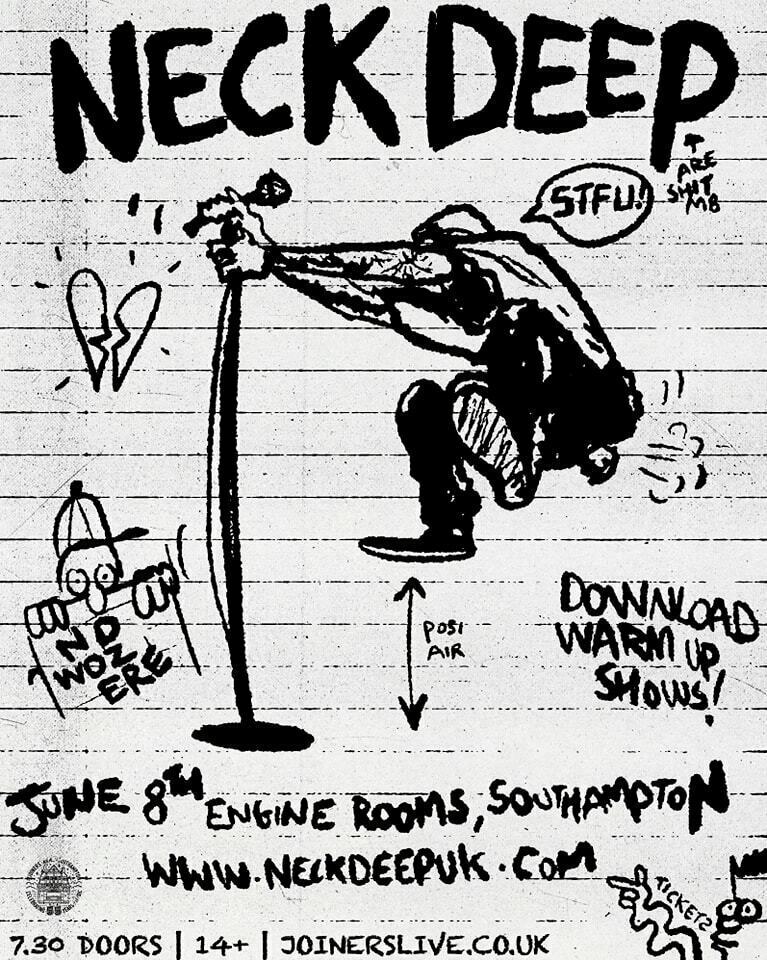 NECK DEEP
↑
ARE
SHIT
M8
STFU!
ND
WOZ
ERE
POSI
AIR
DOWNLOAD
WARM UP
SHOWS!
JUNE 8TH ENGINE ROOMS, SOUTHAMPTON
WWW.NECKDEEPUK.COM
TICKETS
7.30 DOORS | 14+ | JOINERSLIVE.CO.UK